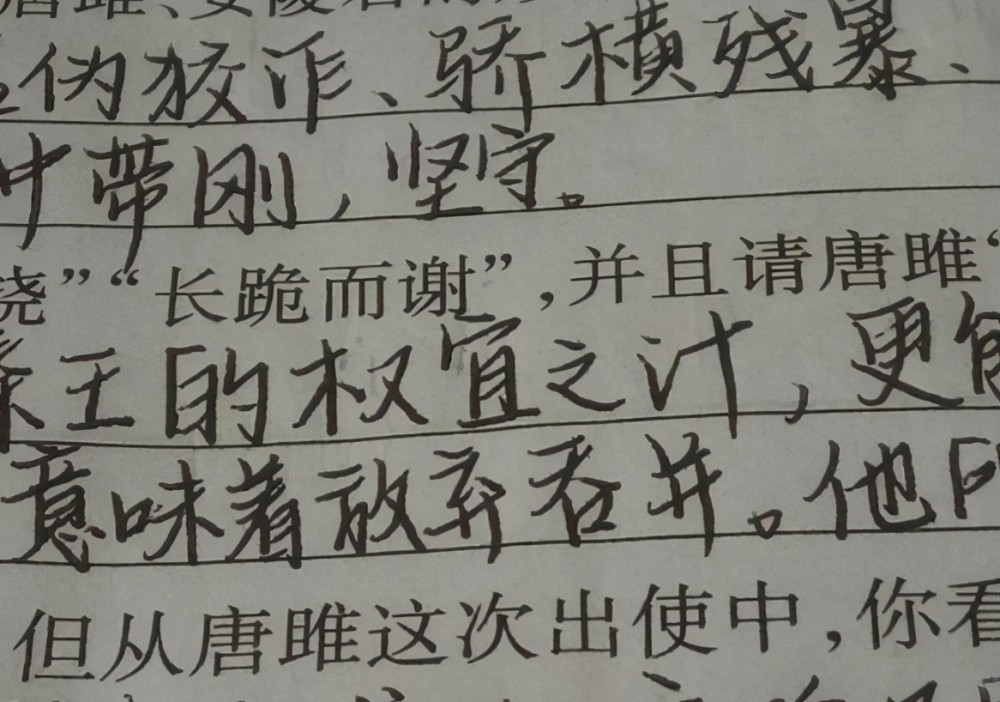 唐雎、安陵君的
伪狡诈、骄横残暴、
中带刚，坚守。
挠”“长跪而谢”，并且请唐雎“
秦王的权宜之计，更能
意味着放弃吞并。他
但从唐雎这次出使中，你看